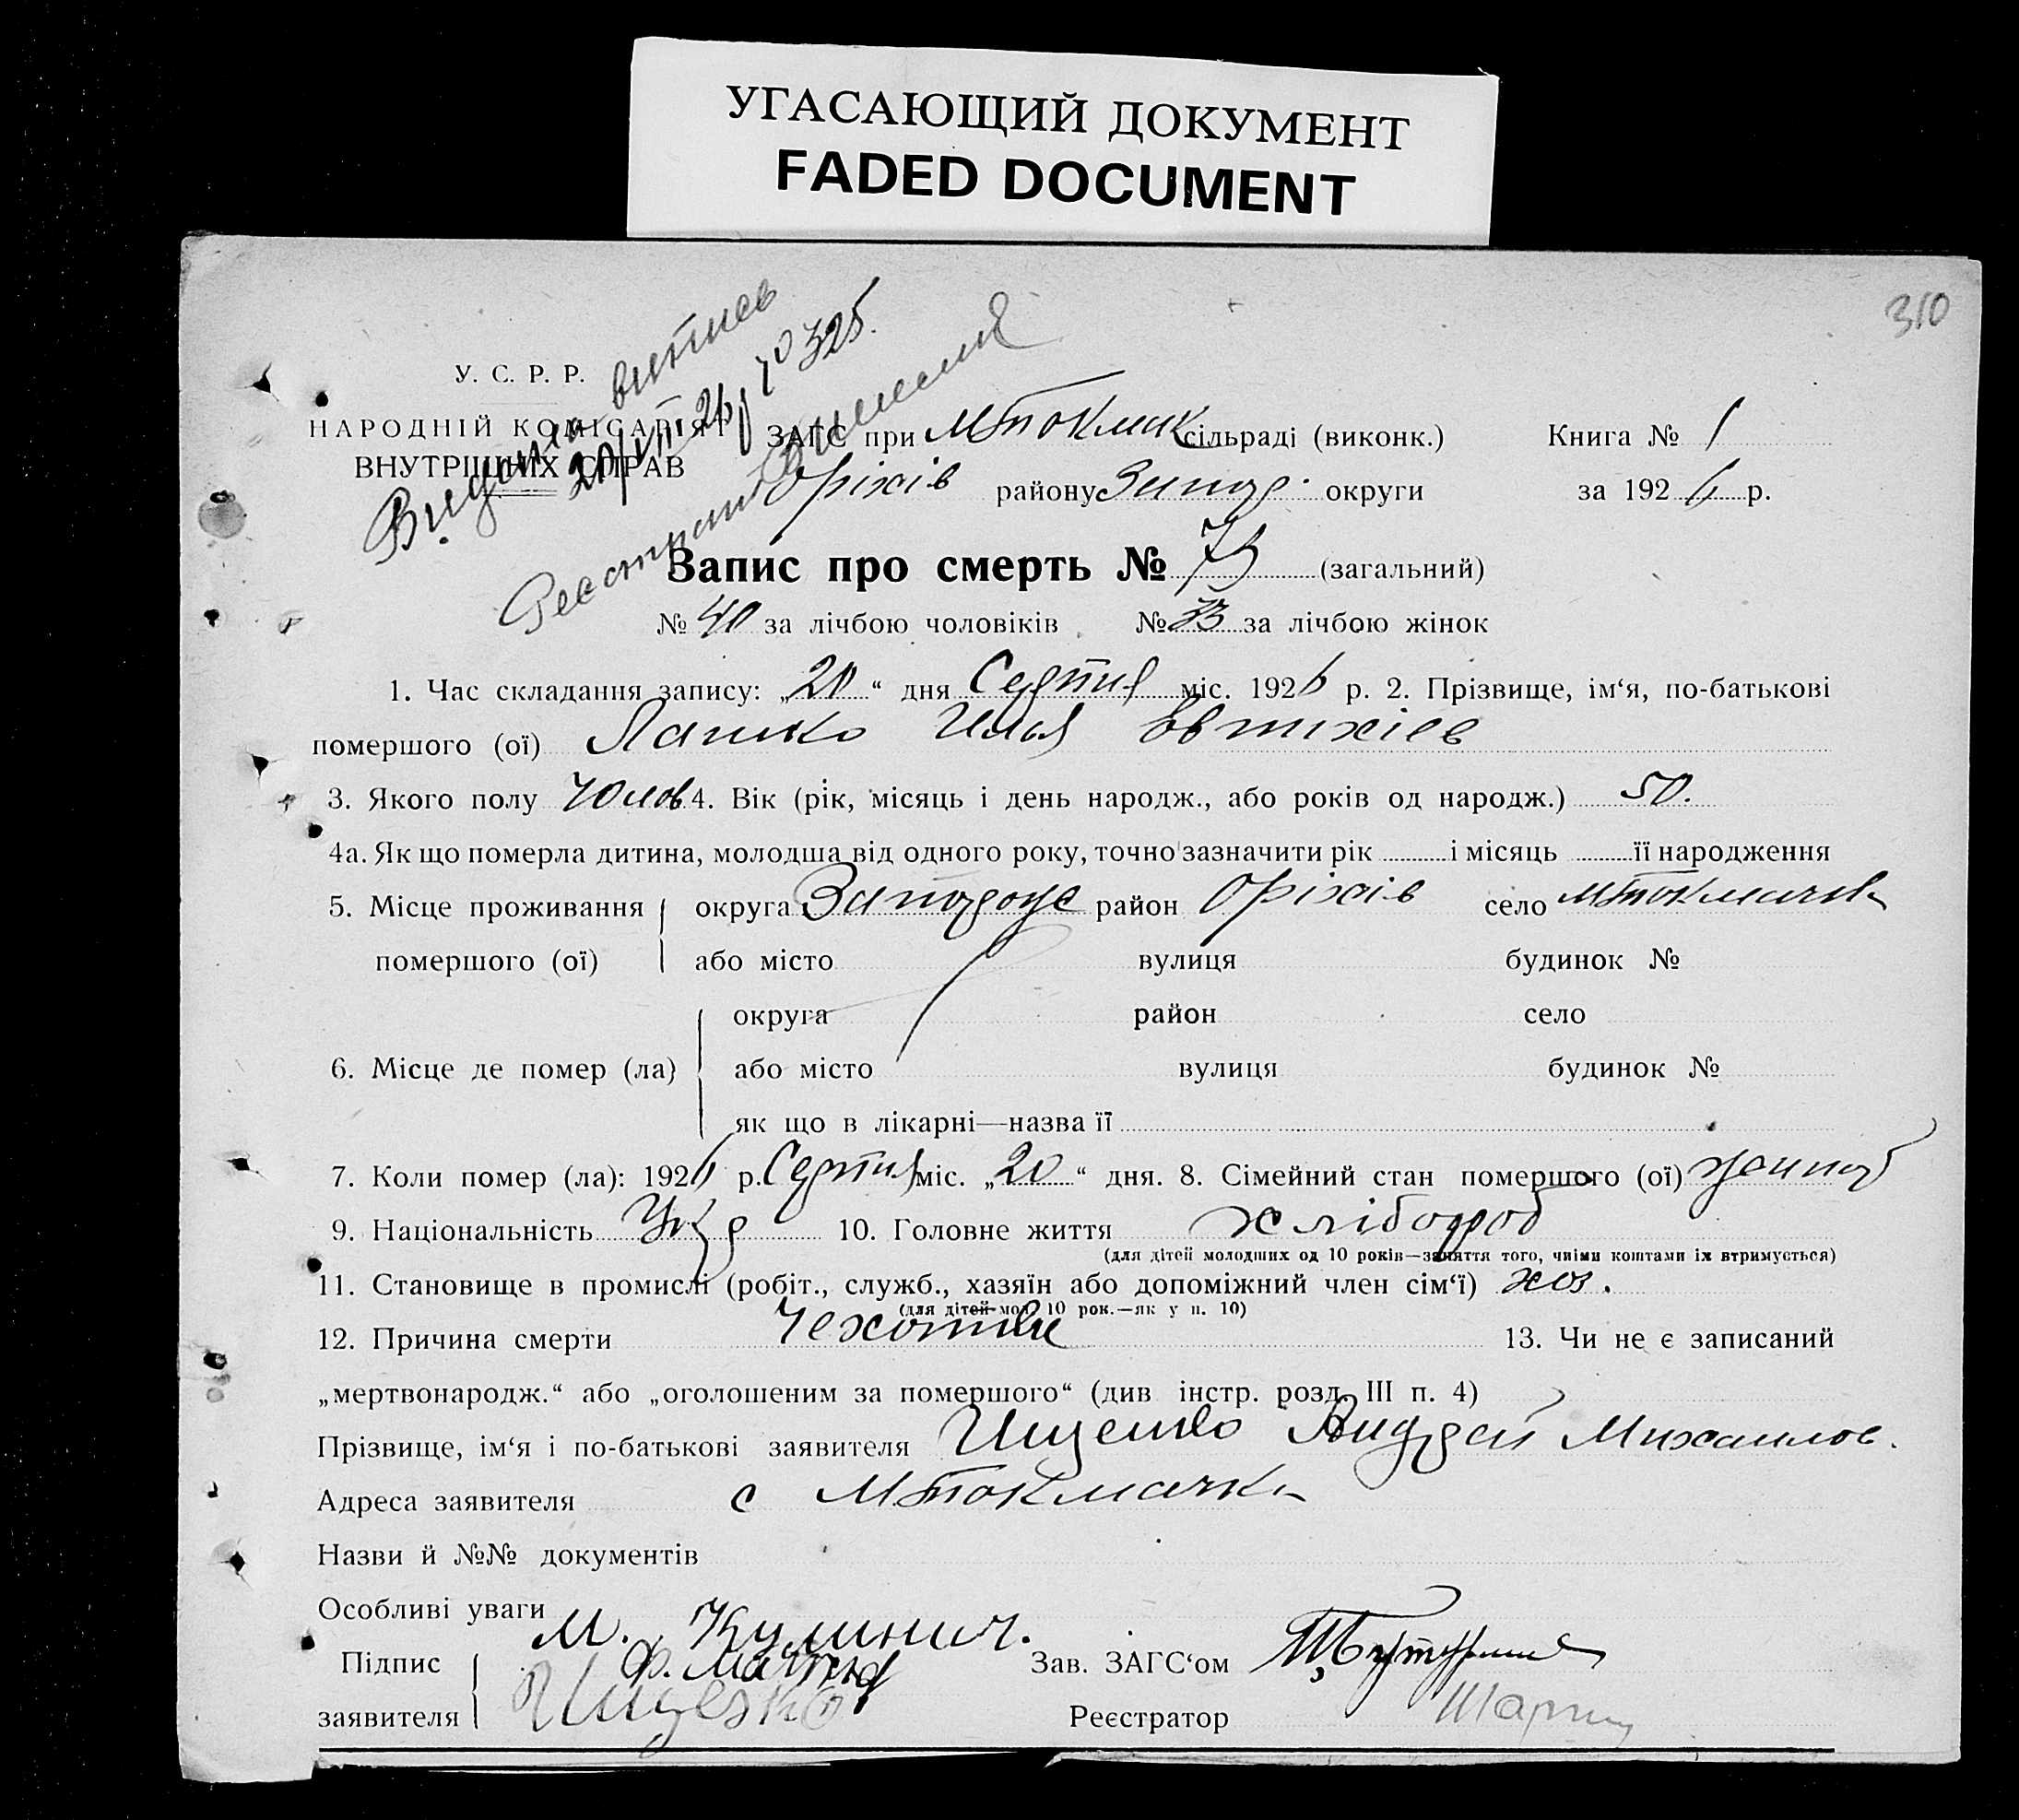 УГАСАЮЩИЙ ДОКУМЕНТ
FADED DOCUMENT
310
Видана витись
20/VIII 26 р 325.
У. С. Р. Р.
НАРОДНІЙ КОМІСАРІЯТ
ВНУТРІШНІХ СПРАВ
ЗАГС при МТокмак сільраді (виконк.) Книга № 1
Оріхів району Запор. округи за 1926 р.
Запис про смерть № 73 (загальний)
№ 40 за лічбою чоловіків № 33 за лічбою жінок
1. Час складання запису: „20“ дня Серпня міс. 1926 р. 2. Прізвище, ім‘я, по-батькові
помершого (ої) Лашко Илья Евтихіев
3. Якого полу Чолов. 4. Вік (рік, місяць і день народж., або років од народж.) 50.
4а. Як що померла дитина, молодша від одного року, точно зазначити рік і місяць її народження
5. Місце проживання округа Запорож район Оріхів село МТокмачка
помершого (ої) або місто вулиця будинок №
округа район село
6. Місце де помер (ла) або місто вулиця будинок №
як що в лікарні—назва її
7. Коли помер (ла): 1926 р. Серпня міс. „20“ дня. 8. Сімейний стан помершого (ої)
9. Національність Укр 10. Головне життя хлібороб
(для дітей молодших од 10 років—заняття того, чиїми коштами їх втримується)
11. Становище в промислі (робіт., служб., хазяїн або допоміжний член сім‘ї) хоз.
(для дітей мол. 10 рок.—як у п. 10)
12. Причина смерти Чехотка 13. Чи не є записаний
„мертвонародж.“ або „оголошеним за помершого“ (див інстр. розд. III п. 4)
Прізвище, ім‘я і по-батькові заявителя Ищенко Андрей Михаилов.
Адреса заявителя с МТокмачка
Назви й №№ документів
Особливі уваги
М. Кулинич.
Підпис Зав. ЗАГС‘ом
заявителя Ищенко Реєстратор